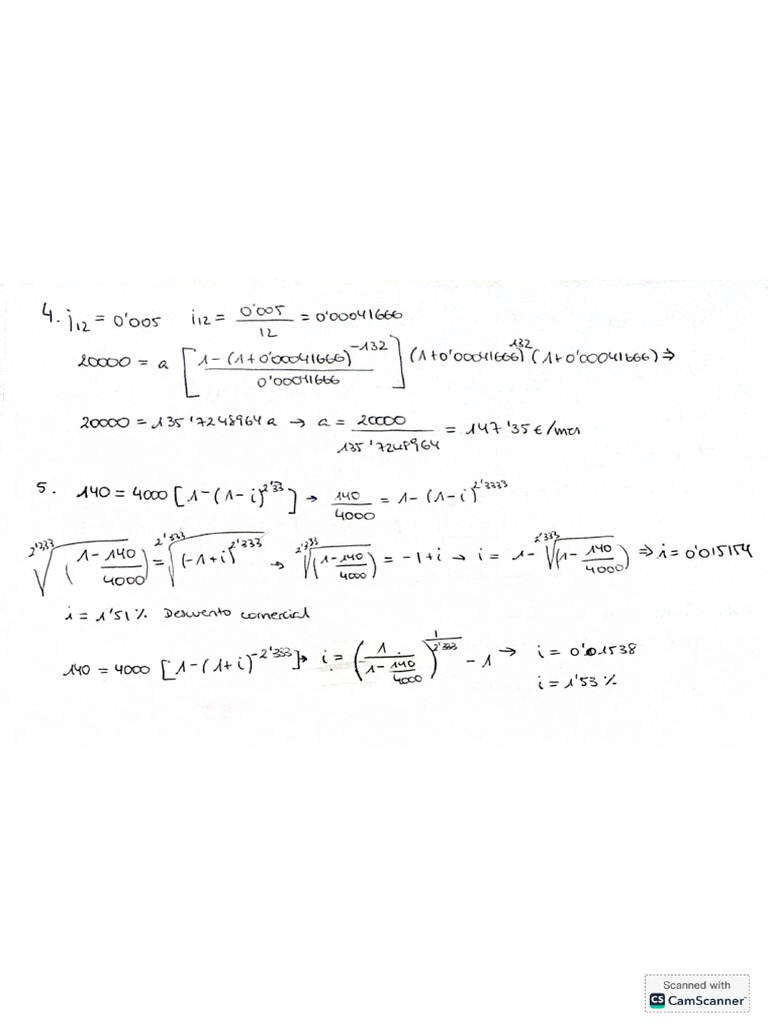 4. j12 = 0'005   i12 = 0'005/12 = 0'00041666
20000 = a [1-(1+0'00041666)^-132 / 0'00041666] (1+0'00041666)^132 (1+0'00041666) ⇒
20000 = 135'7248964 a → a = 20000/135'7248964 = 147'35€/mes
5. 140 = 4000 [1-(1-i)^2'33] → 140/4000 = 1-(1-i)^2'3333
2'333√(1-140/4000) = 2'333√(-1+i)^2'333 → 2'333√(1-140/4000) = -1+i → i = 1- 2'333√(1-140/4000) ⇒ i = 0'015154
i = 1'51% Descuento comercial
140 = 4000 [1-(1+i)^-2'333] → i = (1/(1-140/4000))^(1/2'333) -1 → i = 0'01538
i = 1'53%
Scanned with
CS CamScanner